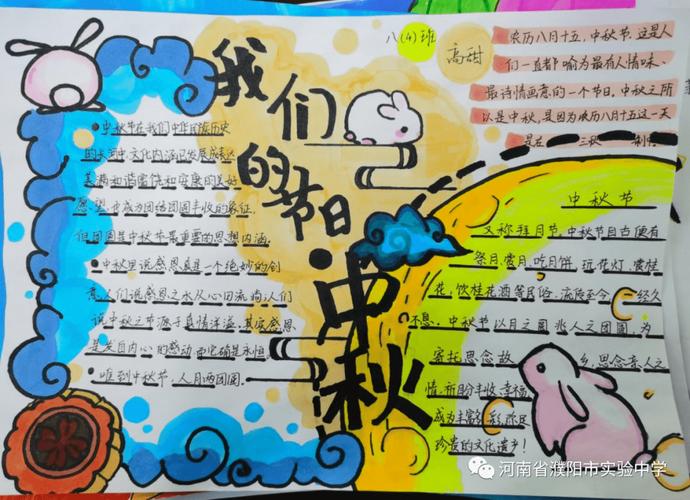 我们的节日·中秋
八(4)班
高甜
农历八月十五,中秋节,这是人
们一直都喻为最有人情味、
最诗情画意的一个节日,中秋之所
以是中秋,是因为农历八月十五这一天
是在 三秋
●中秋节在我们中华民族历史
的长河中,文化内涵已发展成表达
美满和谐富饶和安康的美好
愿望,也成为团结团圆丰收的象征,
但团圆是中秋节最重要的思想内涵。
●中秋里说感恩真是一个绝妙的创
意,人们说感恩之水从心田流淌,人们
说中秋之节源于真情洋溢,其实感恩
是发自内心的感动,而它确是永恒
●唯到中秋节,人月两团圆。
中秋节
又称拜月节,中秋节自古便有
祭月、赏月、吃月饼、玩花灯、赏桂
花、饮桂花酒等民俗,流传至今,经久
不息。中秋节以月之圆兆人之团圆,为
寄托思念故乡,思念亲人之
情,祈盼丰收、幸福
成为丰富多彩、弥足
珍贵的文化遗产!
河南省濮阳市实验中学